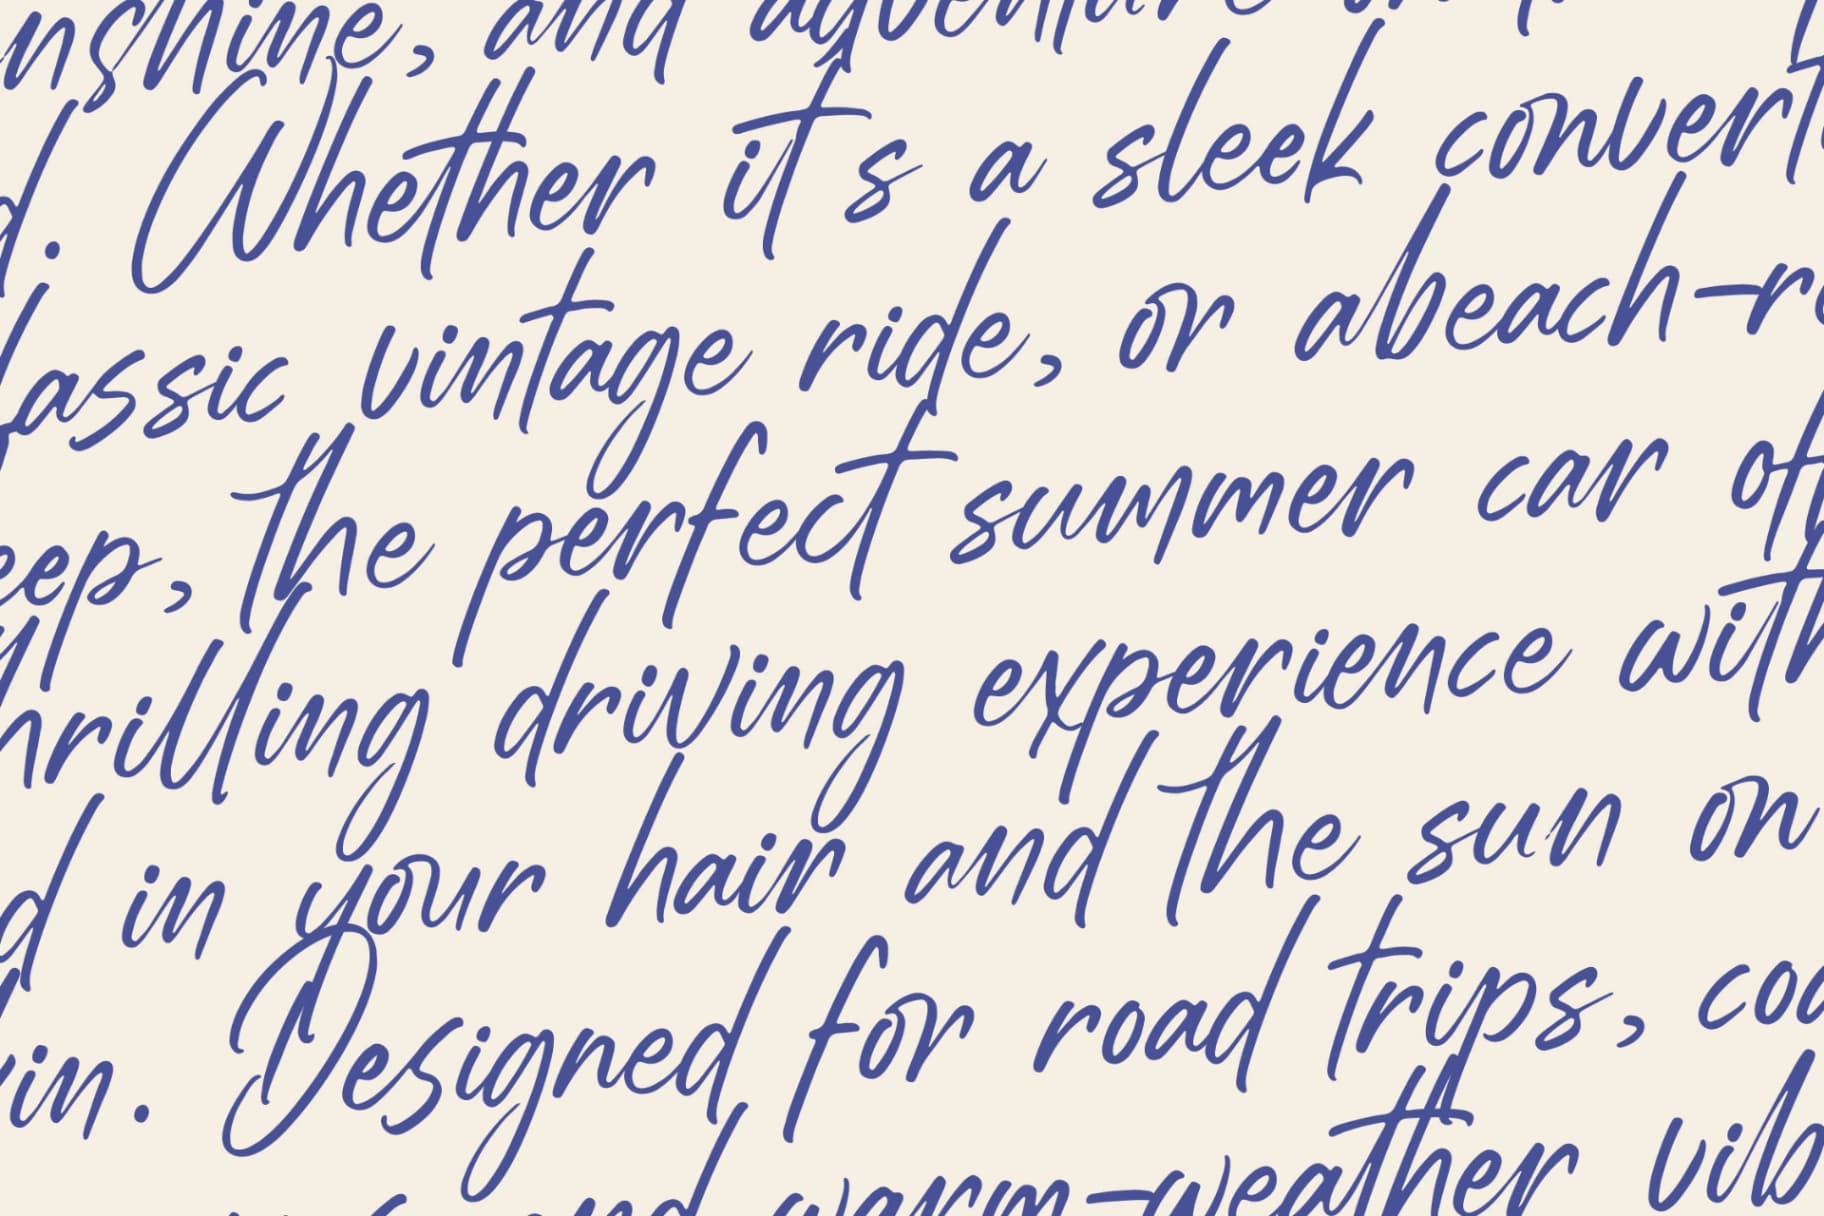 nshine, and adventure
d. Whether it's a sleek convert
lassic vintage ride, or abeach-re
eep, the perfect summer car off
hrilling driving experience with
d in your hair and the sun on
kin. Designed for road trips, coa
and warm-weather vib